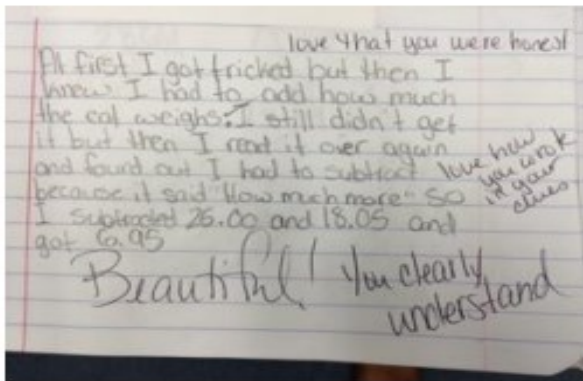 love that you were honest
At first I got tricked but then I
knew I had to add how much
the cat weighs. I still didn't get
it but then I read it over again
and found out I had to subtract
because it said "How much more" so
I subtracted 25.00 and 18.05 and
got 6.95
love how
you wrote
in your
clues
Beautiful! You clearly
understand